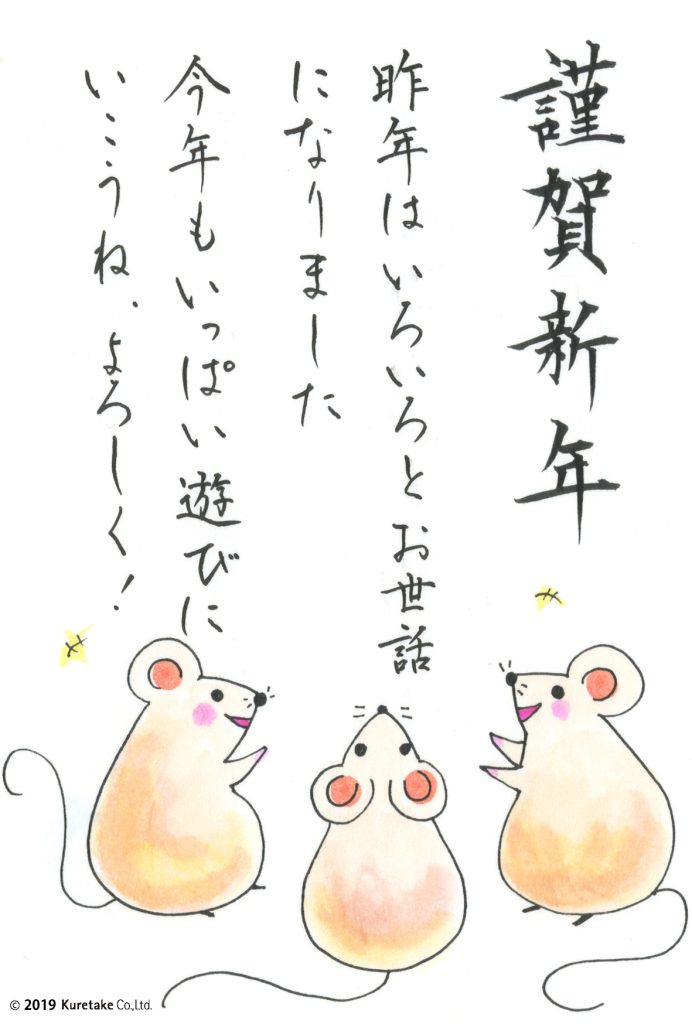 謹賀新年
昨年はいろいろとお世話
になりました
今年もいっぱい遊びに
いこうね、よろしく!
© 2019 Kuretake Co.,Ltd.